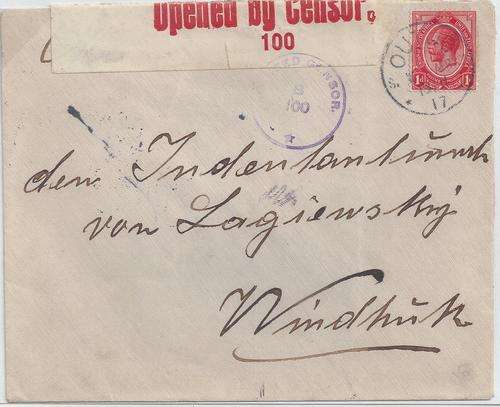 Opened by Censor.
100
OU
17
1d 1d
PASSED CENSOR.
8
100
dem Indentanturrath
von Lagiewsky
Windhuk